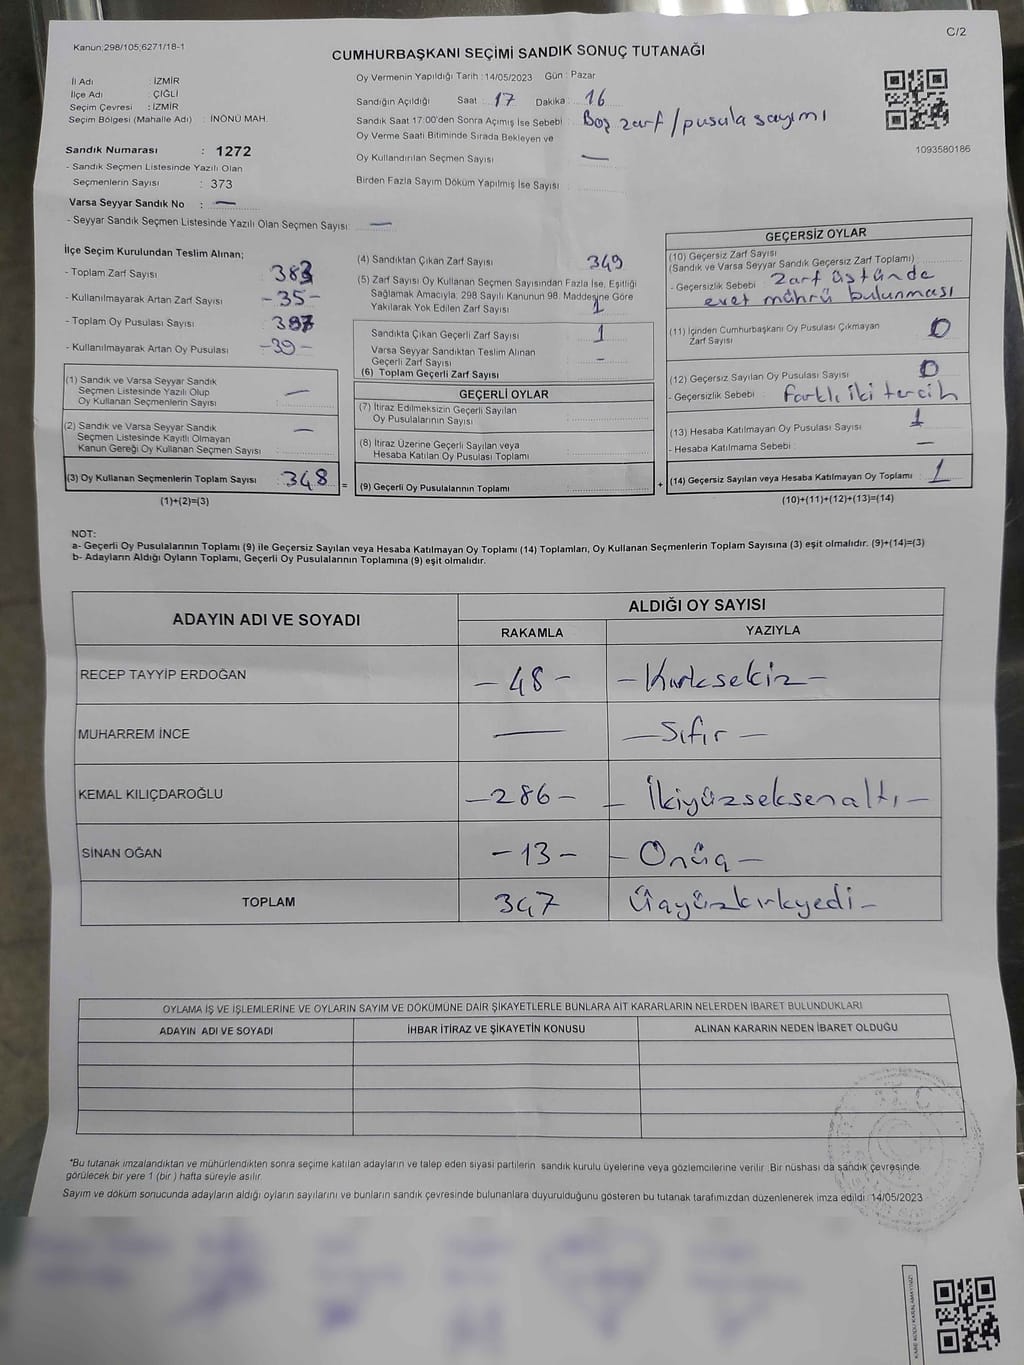 Kanun:298/105;6271/18-1
C/2
CUMHURBAŞKANI SEÇİMİ SANDIK SONUÇ TUTANAĞI
İl Adı : İZMİR
İlçe Adı : ÇİĞLİ
Seçim Çevresi : İZMİR
Seçim Bölgesi (Mahalle Adı) : İNÖNÜ MAH.
Sandık Numarası : 1272
- Sandık Seçmen Listesinde Yazılı Olan
Seçmenlerin Sayısı : 373
Varsa Seyyar Sandık No : —
- Seyyar Sandık Seçmen Listesinde Yazılı Olan Seçmen Sayısı : —
Oy Vermenin Yapıldığı Tarih : 14/05/2023 Gün : Pazar
Sandığın Açıldığı Saat : 17 Dakika : 16
Sandık Saat 17:00'den Sonra Açımış İse Sebebi : Boş zarf/pusula sayımı
Oy Verme Saati Bitiminde Sırada Bekleyen ve
Oy Kullandırılan Seçmen Sayısı : —
Birden Fazla Sayım Döküm Yapılmış İse Sayısı :
1093580186
İlçe Seçim Kurulundan Teslim Alınan;
- Toplam Zarf Sayısı : 383
- Kullanılmayarak Artan Zarf Sayısı : -35-
- Toplam Oy Pusulası Sayısı : 387
- Kullanılmayarak Artan Oy Pusulası : -39-
(1) Sandık ve Varsa Seyyar Sandık
Seçmen Listesinde Yazılı Olup
Oy Kullanan Seçmenlerin Sayısı : —
(2) Sandık ve Varsa Seyyar Sandık
Seçmen Listesinde Kayıtlı Olmayan
Kanun Gereği Oy Kullanan Seçmen Sayısı : —
(3) Oy Kullanan Seçmenlerin Toplam Sayısı : 348
(1)+(2)=(3)
=
(4) Sandıktan Çıkan Zarf Sayısı : 349
(5) Zarf Sayısı Oy Kullanan Seçmen Sayısından Fazla İse, Eşitliği
Sağlamak Amacıyla, 298 Sayılı Kanunun 98. Maddesine Göre
Yakılarak Yok Edilen Zarf Sayısı : 1
Sandıkta Çıkan Geçerli Zarf Sayısı : 1
Varsa Seyyar Sandıktan Teslim Alınan
Geçerli Zarf Sayısı : -
(6) Toplam Geçerli Zarf Sayısı
GEÇERLİ OYLAR
(7) İtiraz Edilmeksizin Geçerli Sayılan
Oy Pusulalarının Sayısı :
(8) İtiraz Üzerine Geçerli Sayılan veya
Hesaba Katılan Oy Pusulası Toplamı :
(9) Geçerli Oy Pusulalarının Toplamı :
+
GEÇERSİZ OYLAR
(10) Geçersiz Zarf Sayısı
(Sandık ve Varsa Seyyar Sandık Geçersiz Zarf Toplamı) :
- Geçersizlik Sebebi : Zarf üstünde
evet mührü bulunması
(11) İçinden Cumhurbaşkanı Oy Pusulası Çıkmayan
Zarf Sayısı : 0
(12) Geçersiz Sayılan Oy Pusulası Sayısı : 0
- Geçersizlik Sebebi : Farklı iki tercih
(13) Hesaba Katılmayan Oy Pusulası Sayısı : 1
- Hesaba Katılmama Sebebi : —
(14) Geçersiz Sayılan veya Hesaba Katılmayan Oy Toplamı : 1
(10)+(11)+(12)+(13)=(14)
NOT:
a- Geçerli Oy Pusulalarının Toplamı (9) ile Geçersiz Sayılan veya Hesaba Katılmayan Oy Toplamı (14) Toplamları, Oy Kullanan Seçmenlerin Toplam Sayısına (3) eşit olmalıdır. (9)+(14)=(3)
b- Adayların Aldığı Oyların Toplamı, Geçerli Oy Pusulalarının Toplamına (9) eşit olmalıdır.
ADAYIN ADI VE SOYADI
ALDIĞI OY SAYISI
RAKAMLA YAZIYLA
RECEP TAYYİP ERDOĞAN -48- -Kırksekiz-
MUHARREM İNCE — -Sıfır-
KEMAL KILIÇDAROĞLU -286- -İkiyüzseksenaltı-
SİNAN OĞAN -13- -Onüç-
TOPLAM 347 Üçyüzkırkyedi-
OYLAMA İŞ VE İŞLEMLERİNE VE OYLARIN SAYIM VE DÖKÜMÜNE DAİR ŞİKAYETLERLE BUNLARA AİT KARARLARIN NELERDEN İBARET BULUNDUKLARI
ADAYIN ADI VE SOYADI İHBAR İTİRAZ VE ŞİKAYETİN KONUSU ALINAN KARARIN NEDEN İBARET OLDUĞU
*Bu tutanak imzalandıktan ve mühürlendikten sonra seçime katılan adayların ve talep eden siyasi partilerin sandık kurulu üyelerine veya gözlemcilerine verilir. Bir nüshası da sandık çevresinde
görülecek bir yere 1 (bir ) hafta süreyle asılır.
Sayım ve döküm sonucunda adayların aldığı oyların sayılarını ve bunların sandık çevresinde bulunanlara duyurulduğunu gösteren bu tutanak tarafımızdan düzenlenerek imza edildi. 14/05/2023
KARE KODU KARALAMAYINIZ!